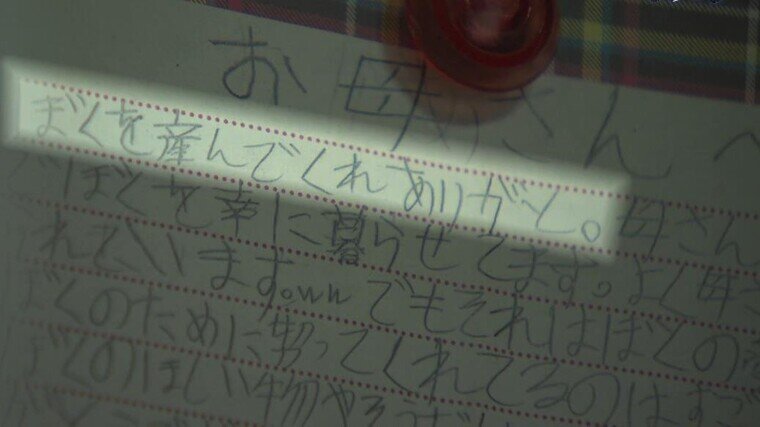 お母さんへ
ぼくを産んでくれありがと。母さん
ぼくを幸に暮らせてます。よく母さ
れています。wwwでもそれはぼくの
ぼくのために怒ってくれてるのはすご
ぼくのほしい物やそうだん